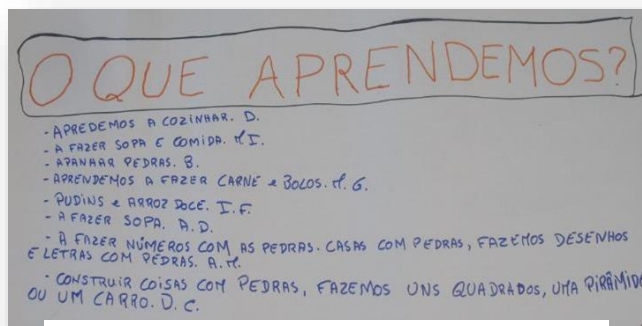 O QUE APRENDEMOS?
- APREDEMOS A COZINHAR. D.
- A FAZER SOPA E COMIDA. M I.
- APANHAR PEDRAS. B.
- APRENDEMOS A FAZER CARNE e BOLOS. M. G.
- PUDINS e ARROZ DOCE. I. F.
- A FAZER SOPA. A. D.
- A FAZER NÚMEROS COM AS PEDRAS. CASAS COM PEDRAS, FAZEMOS DESENHOS
E LETRAS COM PEDRAS. A. M.
- CONSTRUIR COISAS COM PEDRAS, FAZEMOS UNS QUADRADOS, UMA PIRÂMIDE
OU UM CARRO. D. C.